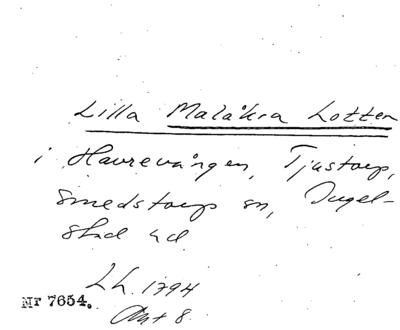 Lilla Malåkra Lotten
i Havrevången, Tjustorp,
Smedstorp sn, Ingel-
stad hd
LL. 1794
Akt 8.
Nr 7654.